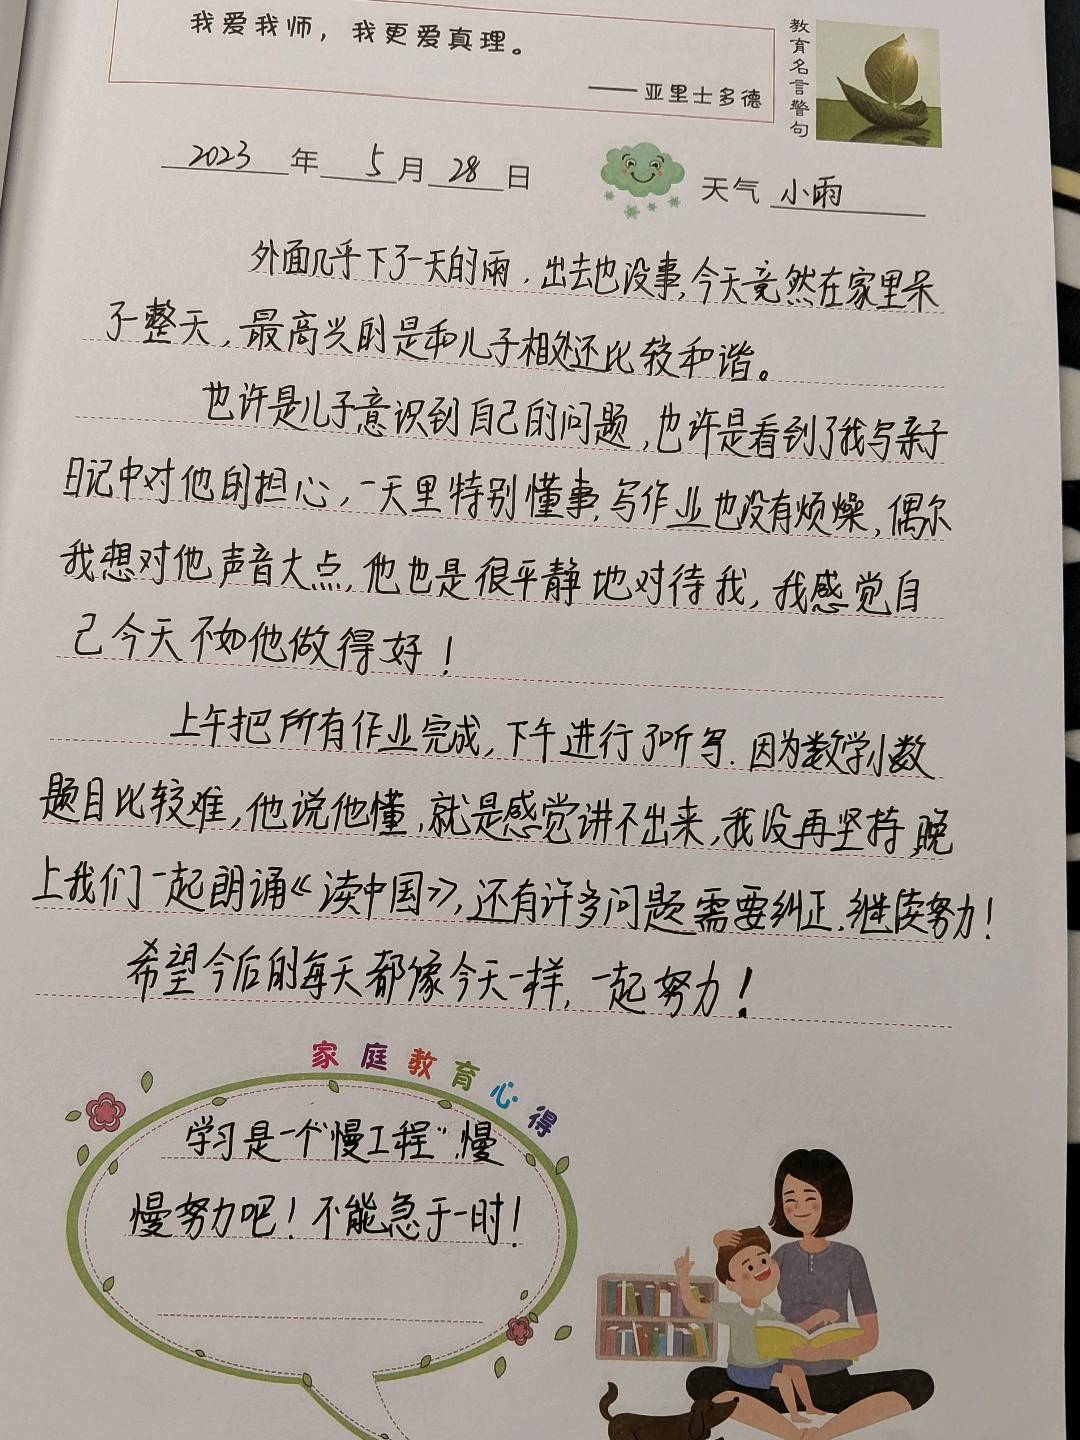 我爱我师，我更爱真理。
——亚里士多德
教育名言警句
2023年5月28日
天气 小雨
外面几乎下了一天的雨，出去也没事，今天竟然在家里呆
了一整天，最高兴的是和儿子相处还比较和谐。
也许是儿子意识到自己的问题，也许是看到了我写亲子
日记中对他的担心，一天里特别懂事，写作业也没有烦燥，偶尔
我想对他声音大点，他也是很平静地对待我，我感觉自
己今天不如他做得好！
上午把所有作业完成，下午进行了听写．因为数学小数
题目比较难，他说他懂，就是感觉讲不出来，我没再坚持，晚
上我们一起朗诵《读中国》，还有许多问题需要纠正．继续努力！
希望今后的每天都像今天一样，一起努力！
家庭教育心得
学习是一个“慢工程”，慢
慢努力吧！不能急于一时！